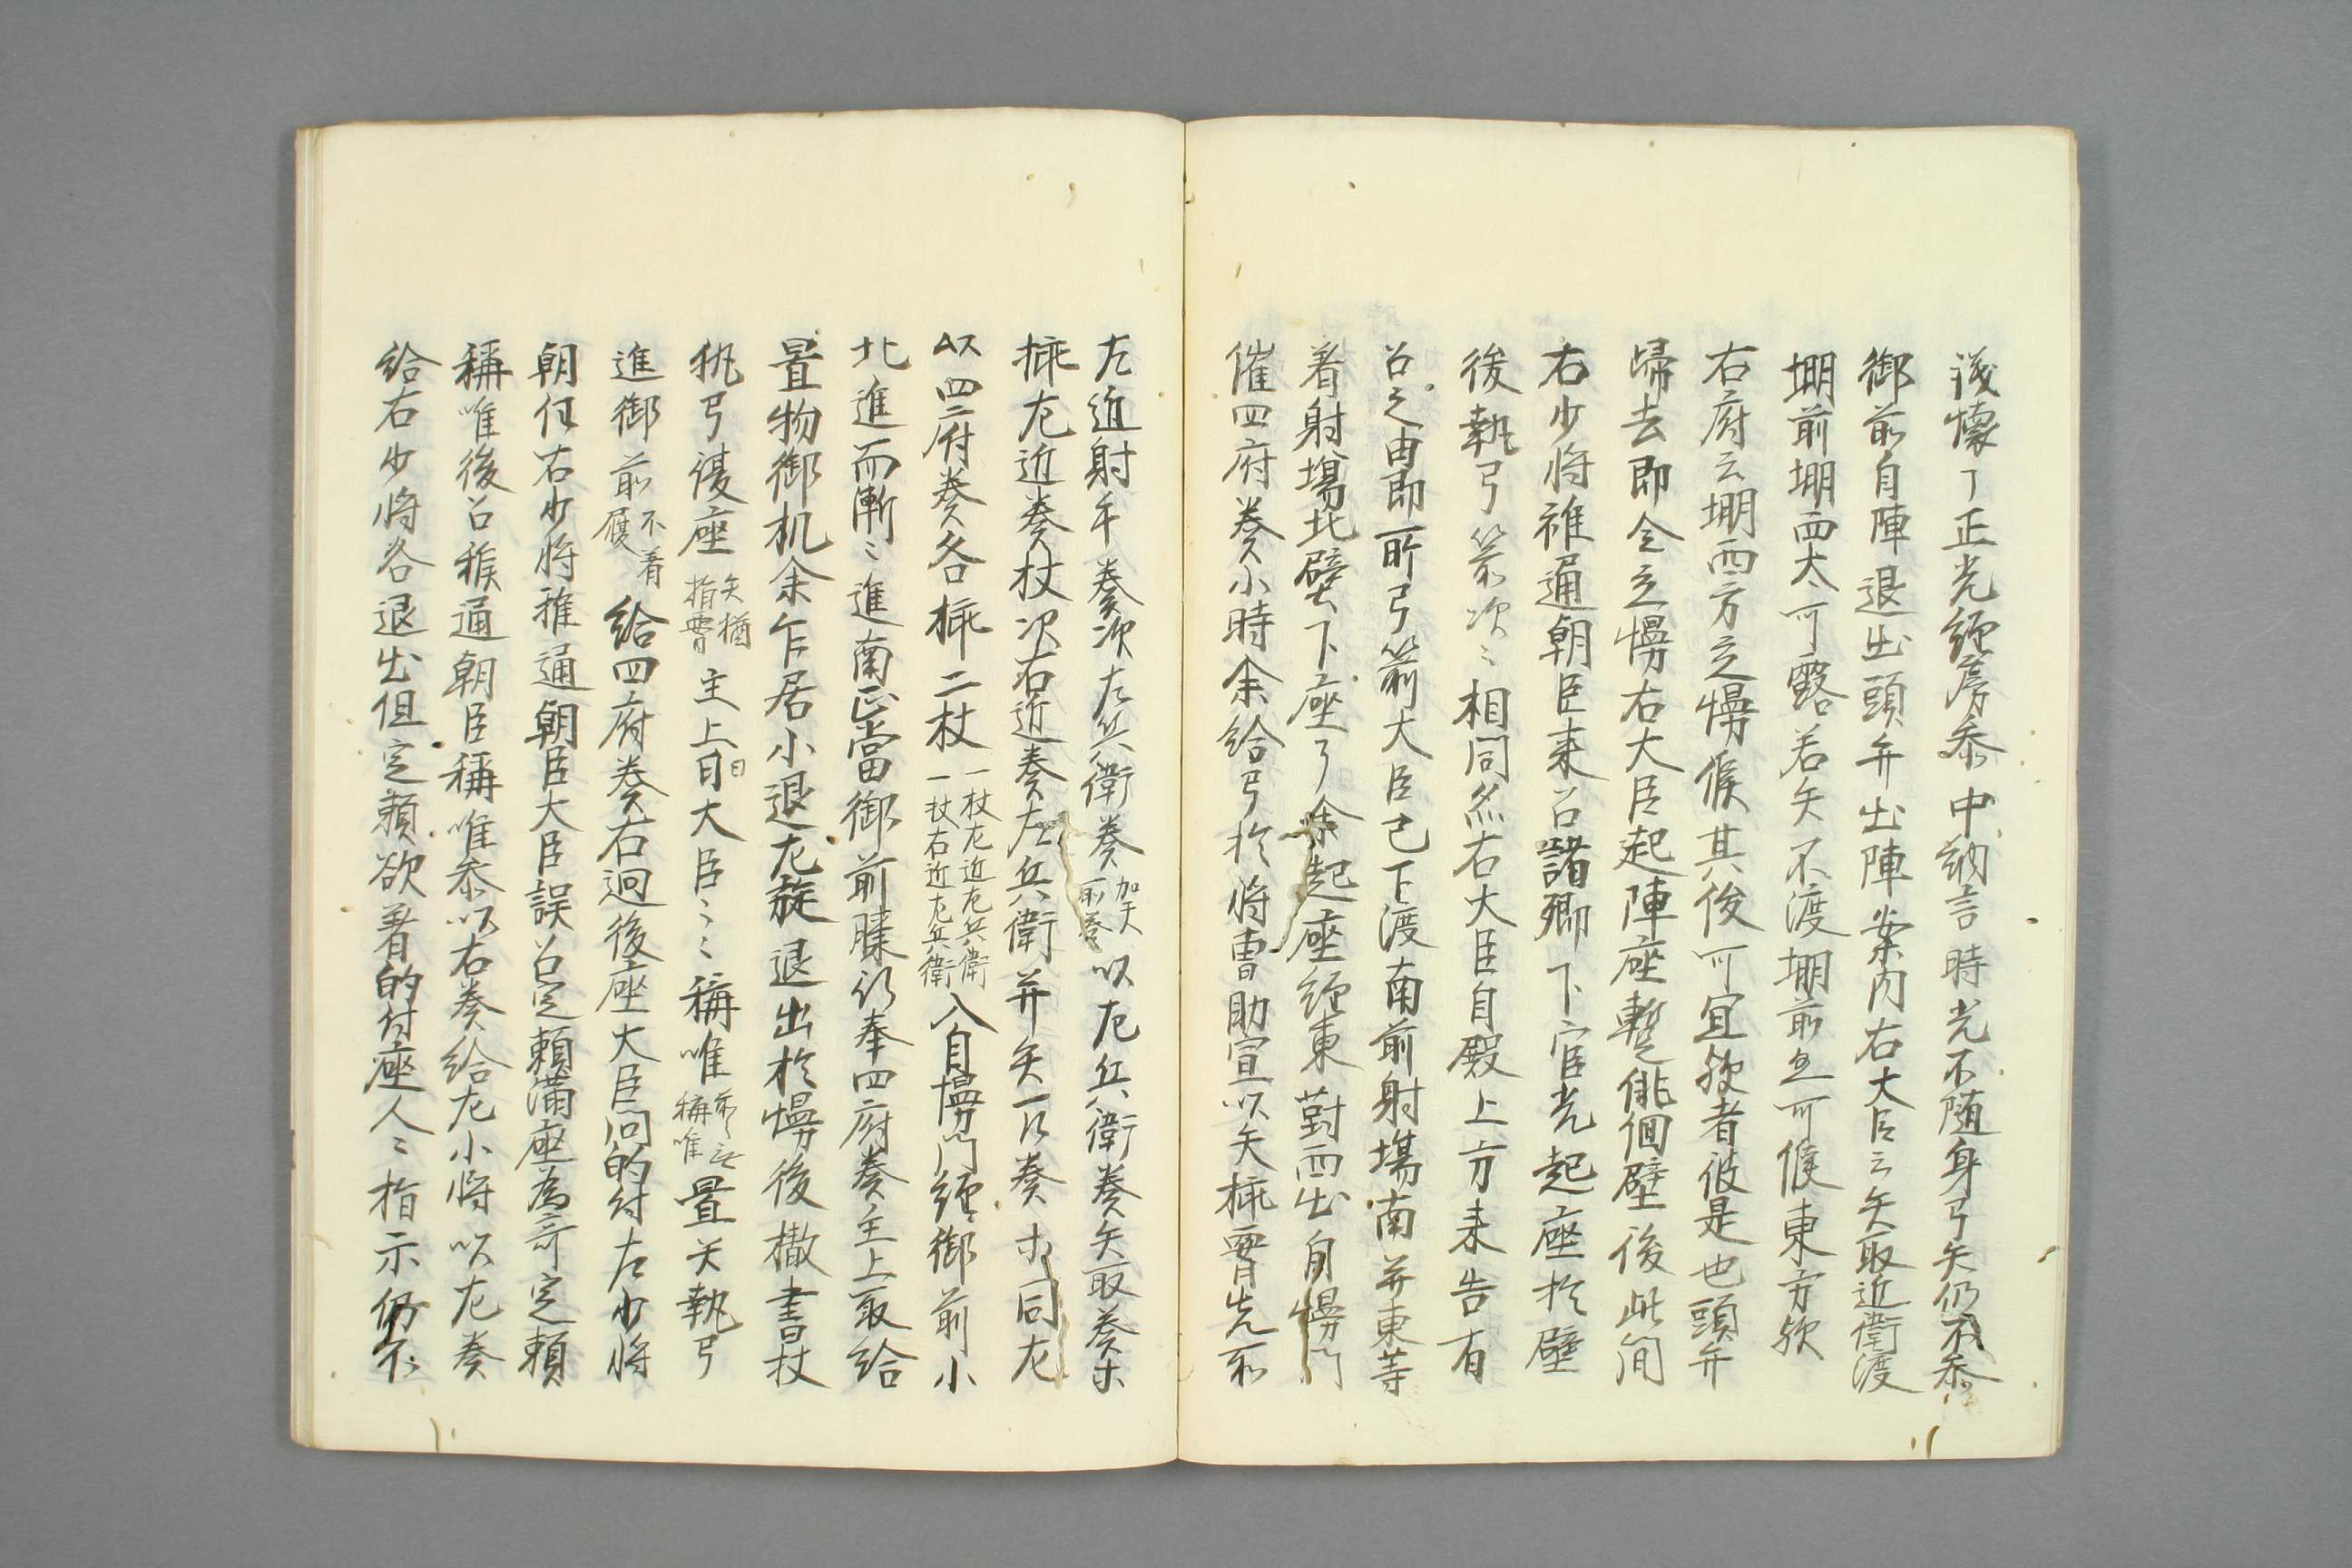 御前自陣退出頭弁出陣案内右大臣云矢取近衛渡
堋前堋西大可露若矢不渡堋前且可候東方欤
右府云堋西方立幔候其後可宜欤者彼是也頭弁
帰去即令立幔右大臣起陣座暫俳佪壁後此間
右少将雅通朝臣来召諸卿下官先起座於壁
後執弓箭次々相同然右大臣自殿上方来告有
召之由即取弓箭大臣已下渡南前射場南并東等
着射場北壁下座了余起座經東對西出自幔門
催四府奏小時余給弓於将曹助宣以矢挿腰先取
左近射手奏次左兵衛奏加矢取奏以左兵衛奏矢取奏等
挿左近奏杖次右近奏左兵衛并矢取奏等同左
以四府奏各挿二杖一杖左近左兵衛一杖右近左兵衛入自幔門經御前小
北進而漸々進南正當御前膝行奉四府奏主上取給
置物御机余乍居小退左旋退出於幔後撤書杖
執弓復座矢猶指腰主上目大臣々々稱唯稱唯置矢執弓
進御前不着履給四府奏右迴後座大臣問的付左少将
朝任右少将雅通朝臣大臣誤召定頼満座為奇定頼
稱唯後召雅通朝臣稱唯参以右奏給左小将以左奏
給右少将各退出但定頼欲着的付座人々指示仍不